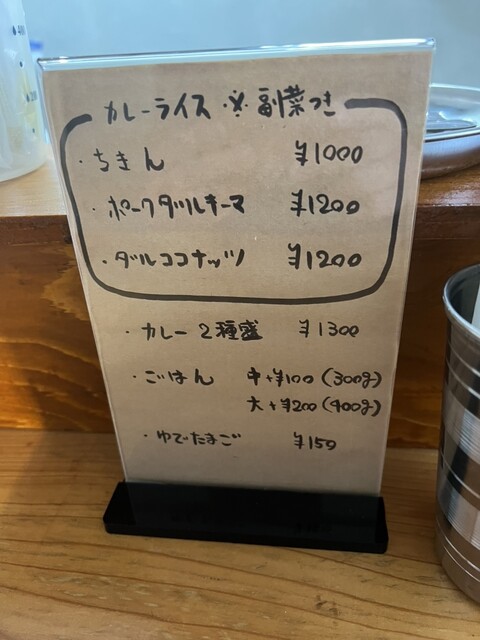 カレーライス ※副菜つき
・ちきん ¥1000
・ポークダルキーマ ¥1200
・ダルココナッツ ¥1200
・カレー2種盛 ¥1300
・ごはん 中+¥100(300g)
大+¥200(400g)
・ゆでたまご ¥150